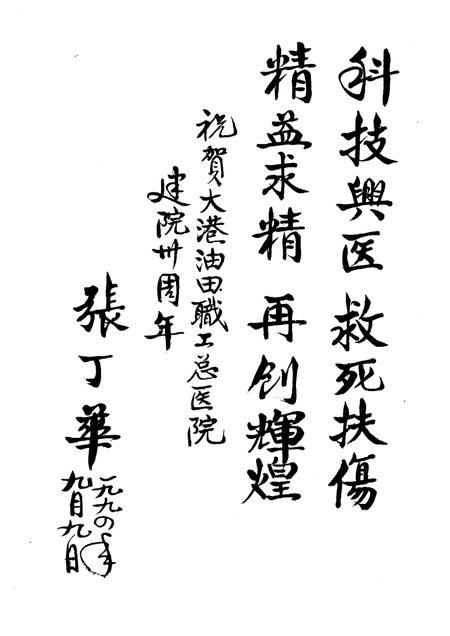 科技興医 救死扶傷
精益求精 再创輝煌
祝賀大港油田職工总医院
建院卅周年
張丁華
一九九四年
九月九日